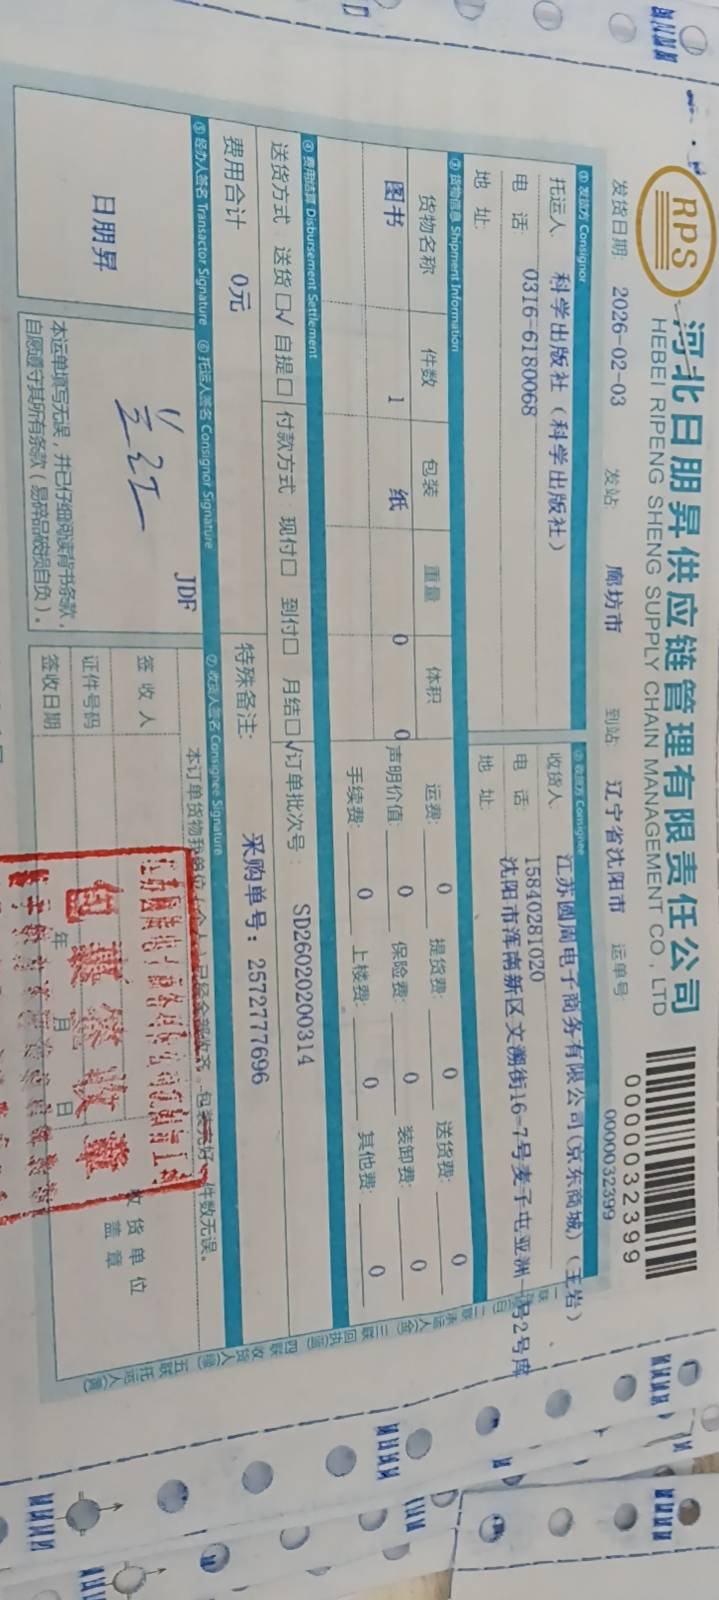 RPS
河北日朋昇供应链管理有限责任公司
HEBEI RIPENG SHENG SUPPLY CHAIN MANAGEMENT CO., LTD
0000032399
发货日期: 2026-02-03 发站: 廊坊市 到站: 辽宁省沈阳市 运单号: 0000032399
① 发货方 Consignor
托运人: 科学出版社(科学出版社)
电 话: 0316-6180068
地 址:
② 收货方 Consignee
收货人: 江苏圆周电子商务有限公司(京东商城)(王岩)
电 话: 15840281020
地 址: 沈阳市浑南新区文溯街16-7号麦子屯亚洲一号2号库
③ 货物信息 Shipment Information
货物名称 件数 包装 重量 体积
图书 1 纸 0 0
运费: 0 提货费: 0 送货费: 0
声明价值: 0 保险费: 0 装卸费: 0
手续费: 0 上楼费: 0 其他费: 0
④ 费用结算 Disbursement Settlement
送货方式: 送货□√ 自提□ 付款方式: 现付□ 到付□ 月结□√ 订单批次号: SD26020200314
费用合计 0元 特殊备注: 采购单号: 2572777696
⑤ 经办人签名 Transactor Signature ⑥ 托运人签名 Consignor Signature ⑦ 收货人签名 Consignee Signature
日朋昇
JDF
本运单填写无误,并已仔细阅读背书条款,
自愿遵守其所有条款(易碎品破损自负)。
本订单货物我单位(个人)已经全部收齐。包装完好、件数无误。
签 收 人
证件号码
签收日期 年 月 日
收 货 单 位
盖 章